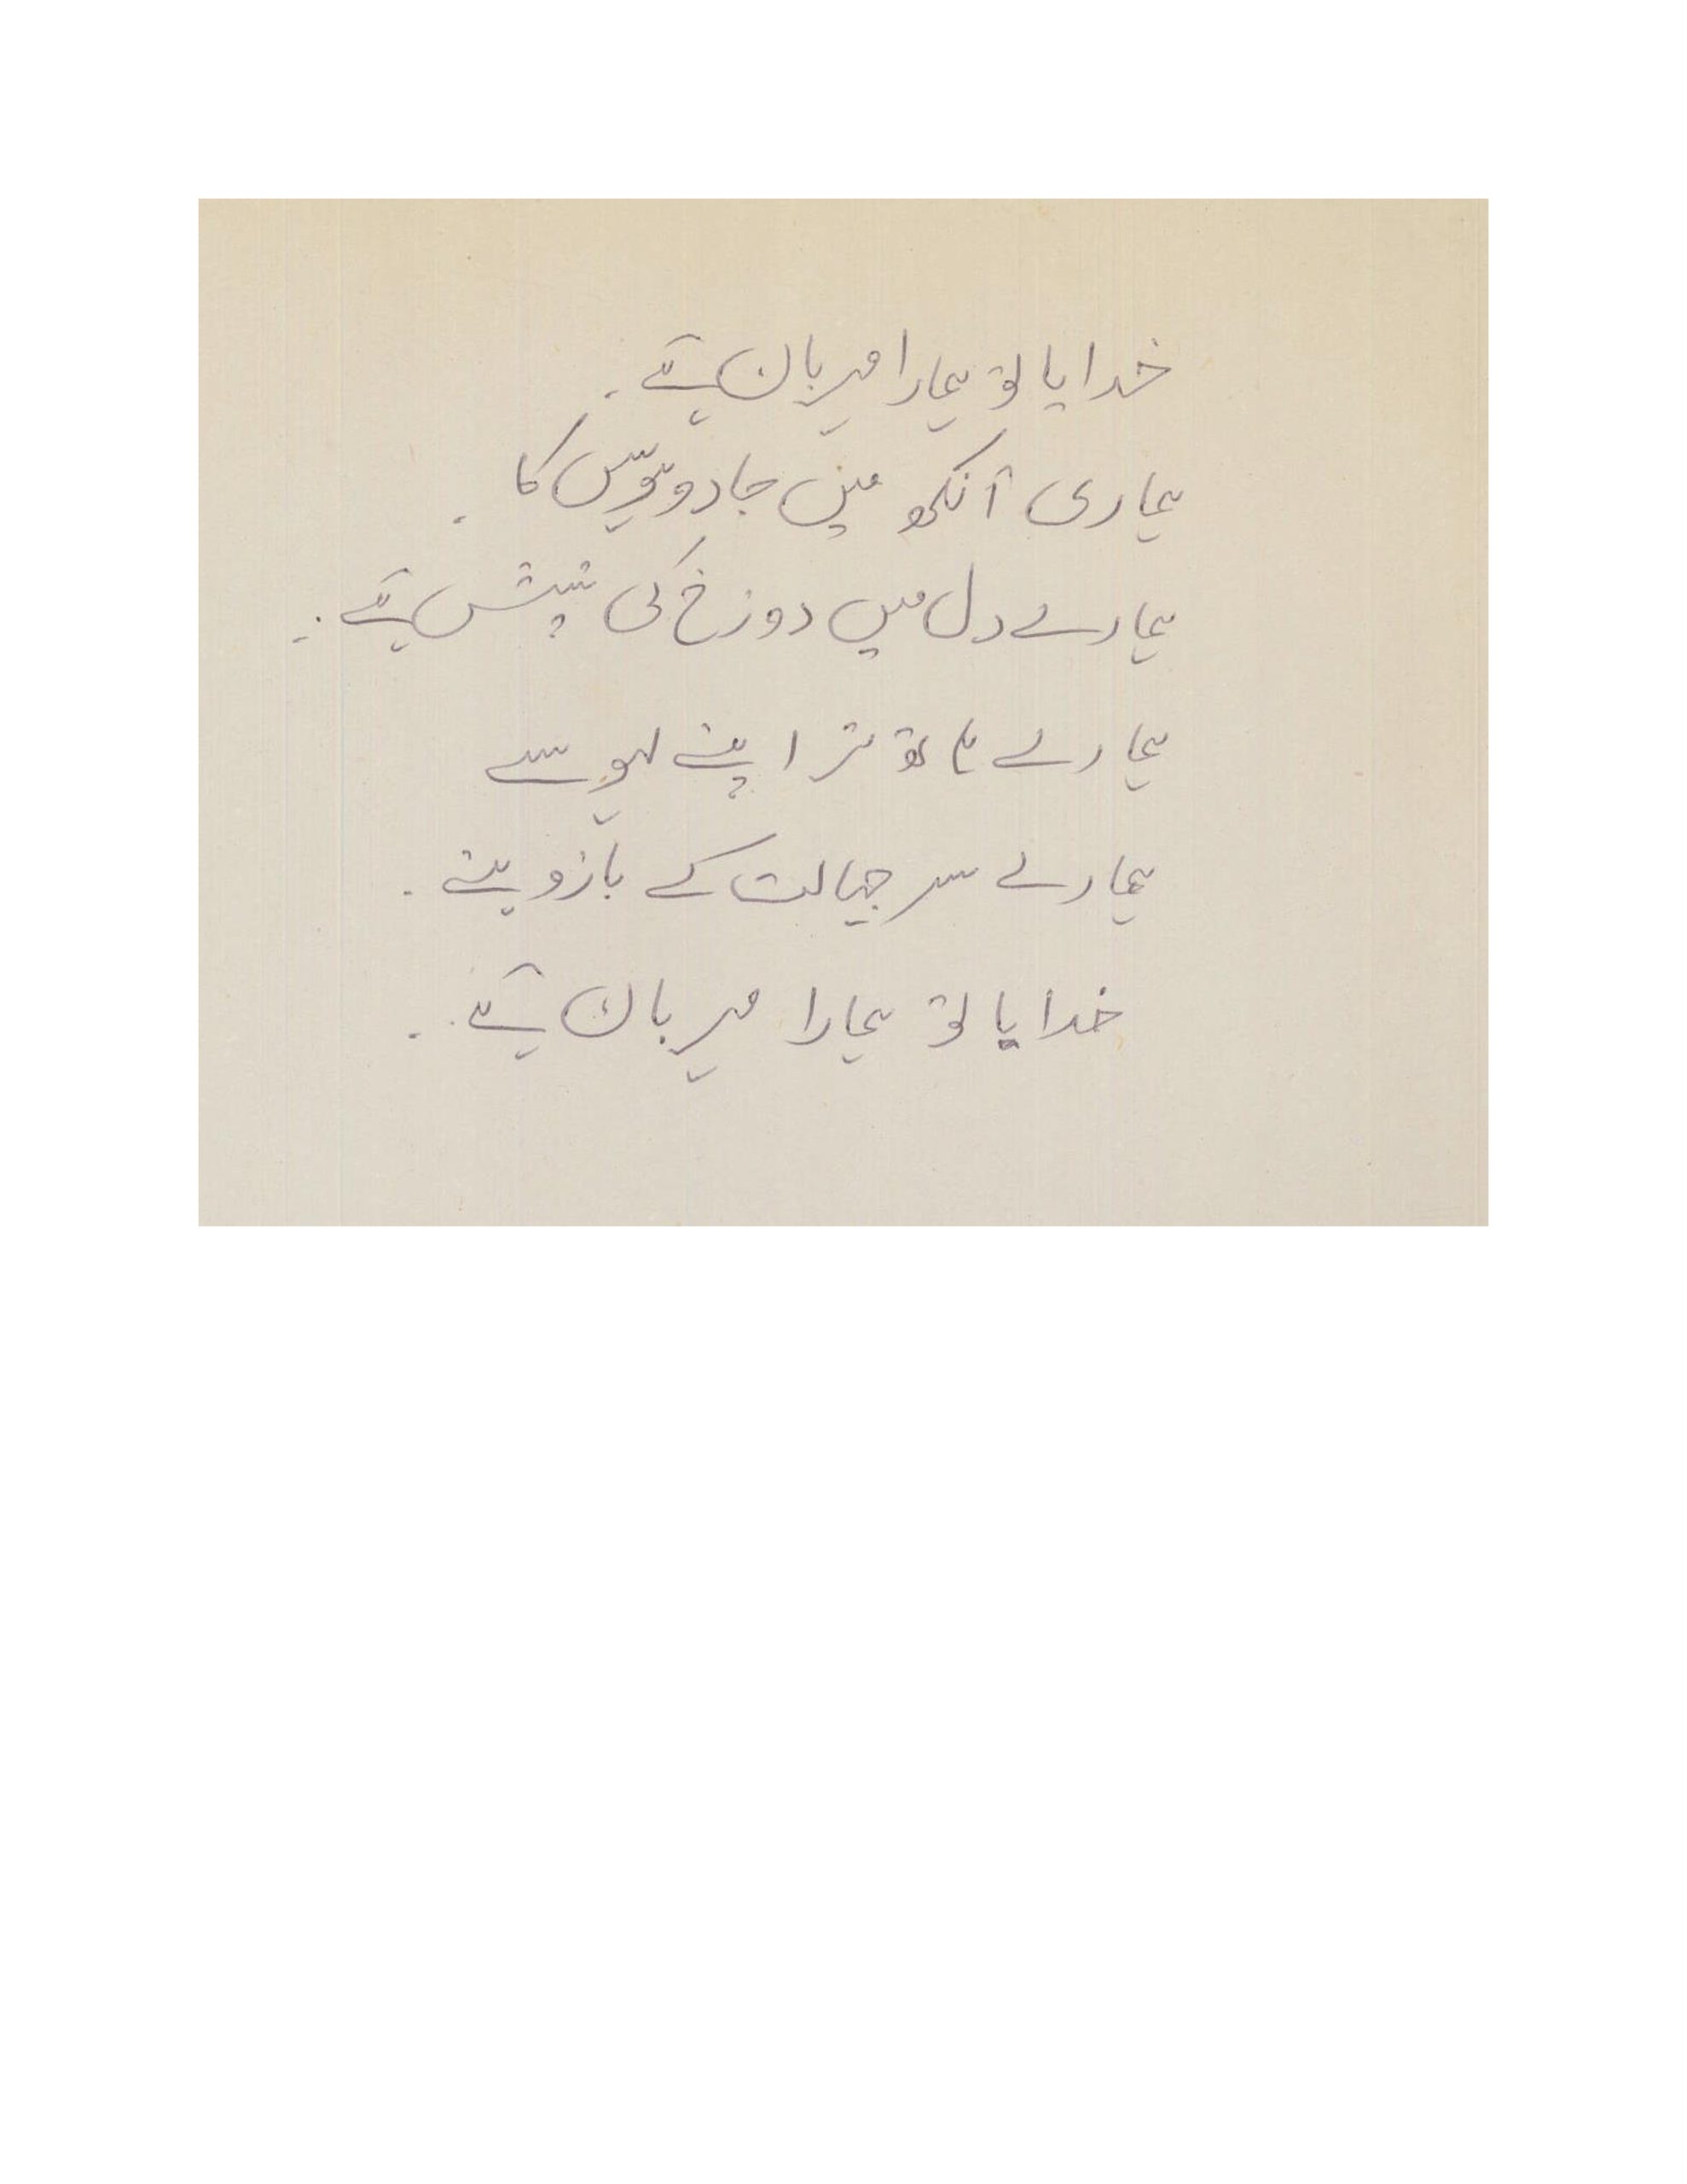 خدایا تو ہمارا مہرباں ہے۔
ہماری آنکھ میں جادو ہوس کا۔
ہمارے دل میں دوزخ کی تپش ہے۔۔
ہمارے ہاتھ تر اپنے لہو سے
ہمارے سر جہالت کے بازو پنے۔
خدایا تو ہمارا مہرباں ہے۔۔